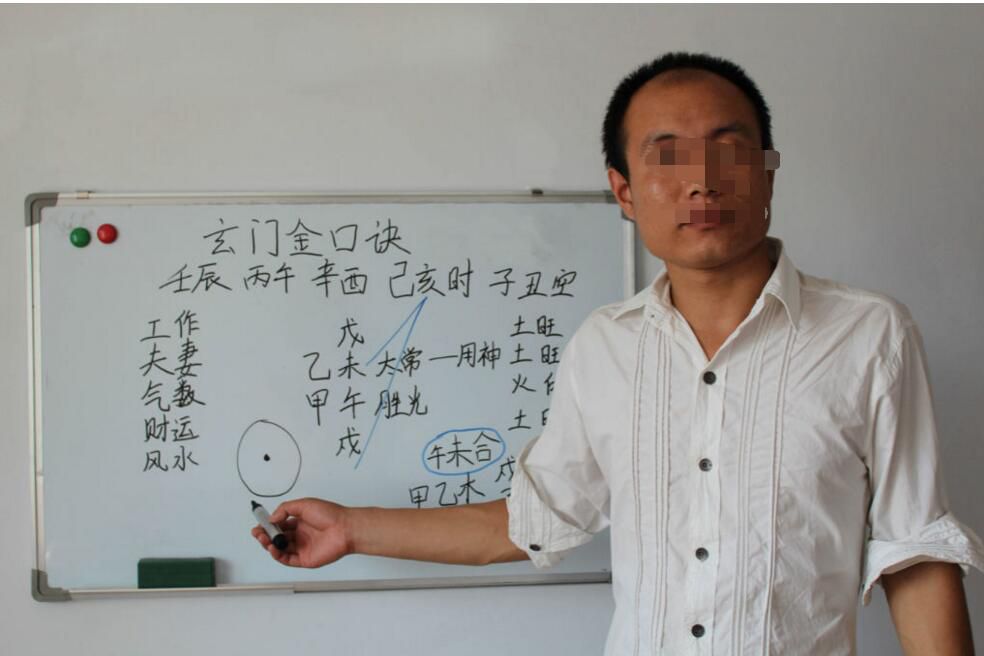 玄门金口诀
壬辰 丙午 辛酉 己亥时 子丑空
工作
夫妻
气数
财运
风水
戊
乙未 太常 一用神
甲午 胜光
戌
土旺
土旺
火
土
午未合
甲乙木